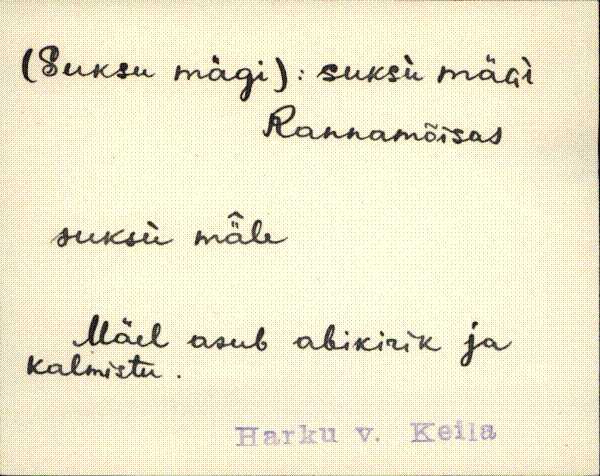 (Suksu mägi): suksù mäɢì
Rannamõisas
suksù mä̂le
Mäel asub abikirik ja
kalmistu.
Harku v. Keila